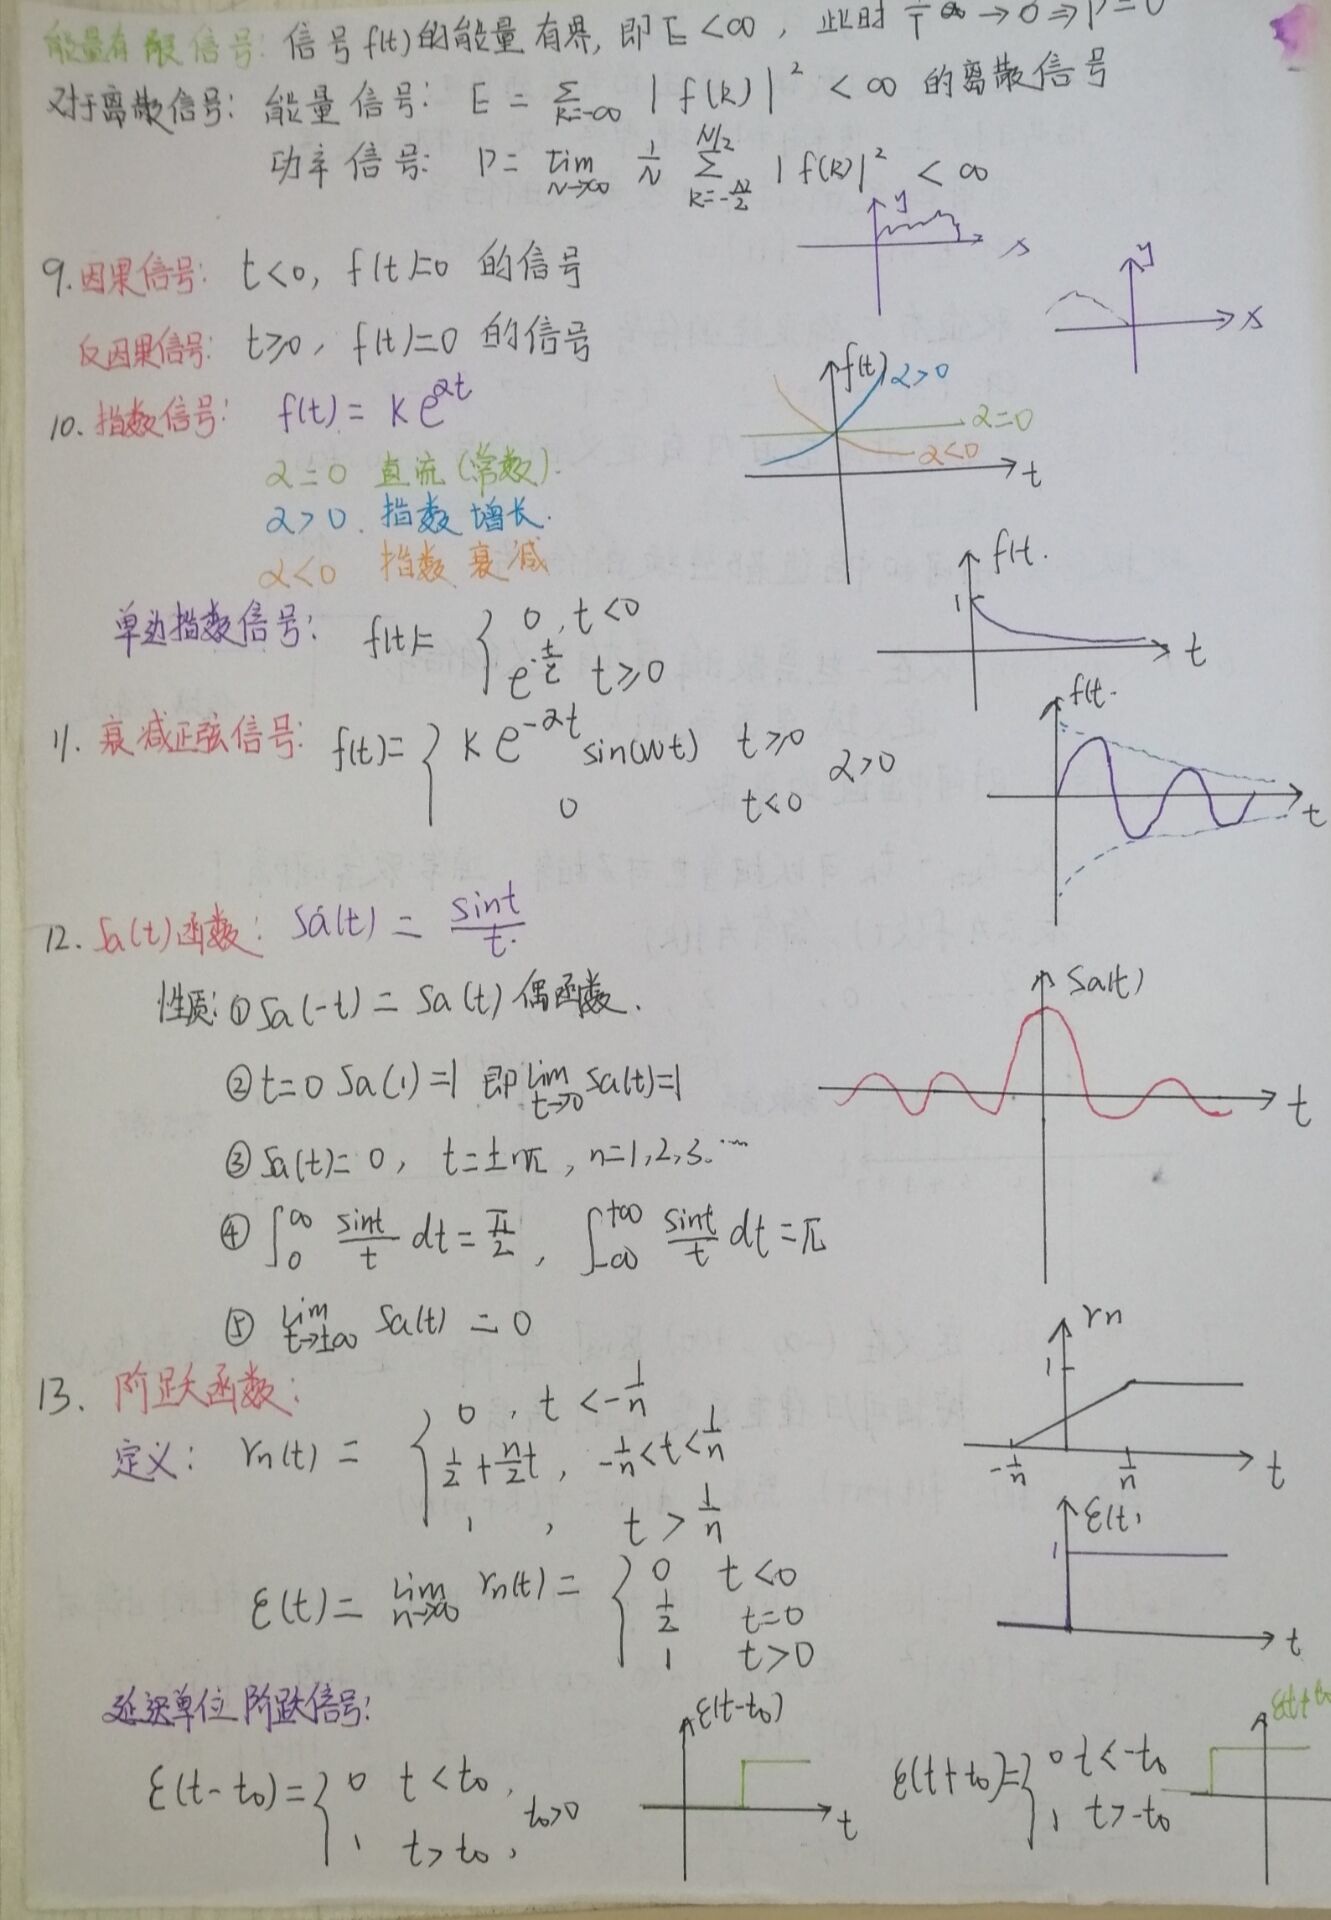 能量有限信号: 信号f(t)的能量有界, 即E<∞, 此时 1/T ∞→0⇒P=0
对于离散信号: 能量信号: E = Σ_{k=-∞} |f(k)|² < ∞ 的离散信号
功率信号: P = lim_{N→∞} 1/N Σ_{k=-N/2}^{N/2} |f(k)|² < ∞
y
x
y
x
9. 因果信号: t<0, f(t)=0 的信号
反因果信号: t≥0, f(t)=0 的信号
10. 指数信号: f(t) = Ke^{αt}
α=0 直流(常数).
α>0. 指数增长.
α<0 指数衰减
f(t)
α>0
α=0
α<0
t
单边指数信号: f(t)= { 0, t<0
e^{-t/τ} t≥0
f(t.
1
t
11. 衰减正弦信号: f(t)= { Ke^{-αt} sin(wt) t≥0 α>0
0 t<0
f(t.
t
12. Sa(t)函数: Sa(t) = sint/t.
性质: ① Sa(-t) = Sa(t) 偶函数.
② t=0 Sa(1)=1 即 lim_{t→0} Sa(t)=1
③ Sa(t)=0, t=±nπ, n=1,2,3.…
④ ∫_0^∞ sint/t dt = π/2, ∫_{-∞}^{+∞} sint/t dt = π
⑤ lim_{t→±∞} Sa(t) = 0
Sa(t)
t
13. 阶跃函数:
定义: rn(t) = { 0, t<-1/n
1/2 + n/2 t, -1/n<t<1/n
1, t>1/n
rn
1
-1/n
1/n
t
ε(t) = lim_{n→∞} rn(t) = { 0 t<0
1/2 t=0
1 t>0
ε(t)
1
t
延迟单位阶跃信号:
ε(t-t₀)= { 0 t<t₀,
1 t>t₀, t₀>0
ε(t-t₀)
t
ε(t+t₀)= { 0 t<-t₀
1 t>-t₀
ε(t+t₀